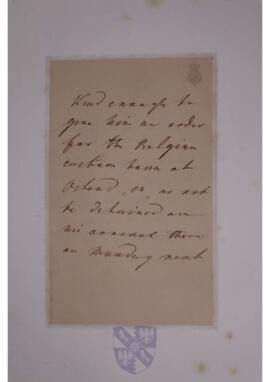 Kind enough to
give him an order
for the Belgian
custom house at
Ostend, so as not
to be detained on
his arrival there
on Monday next